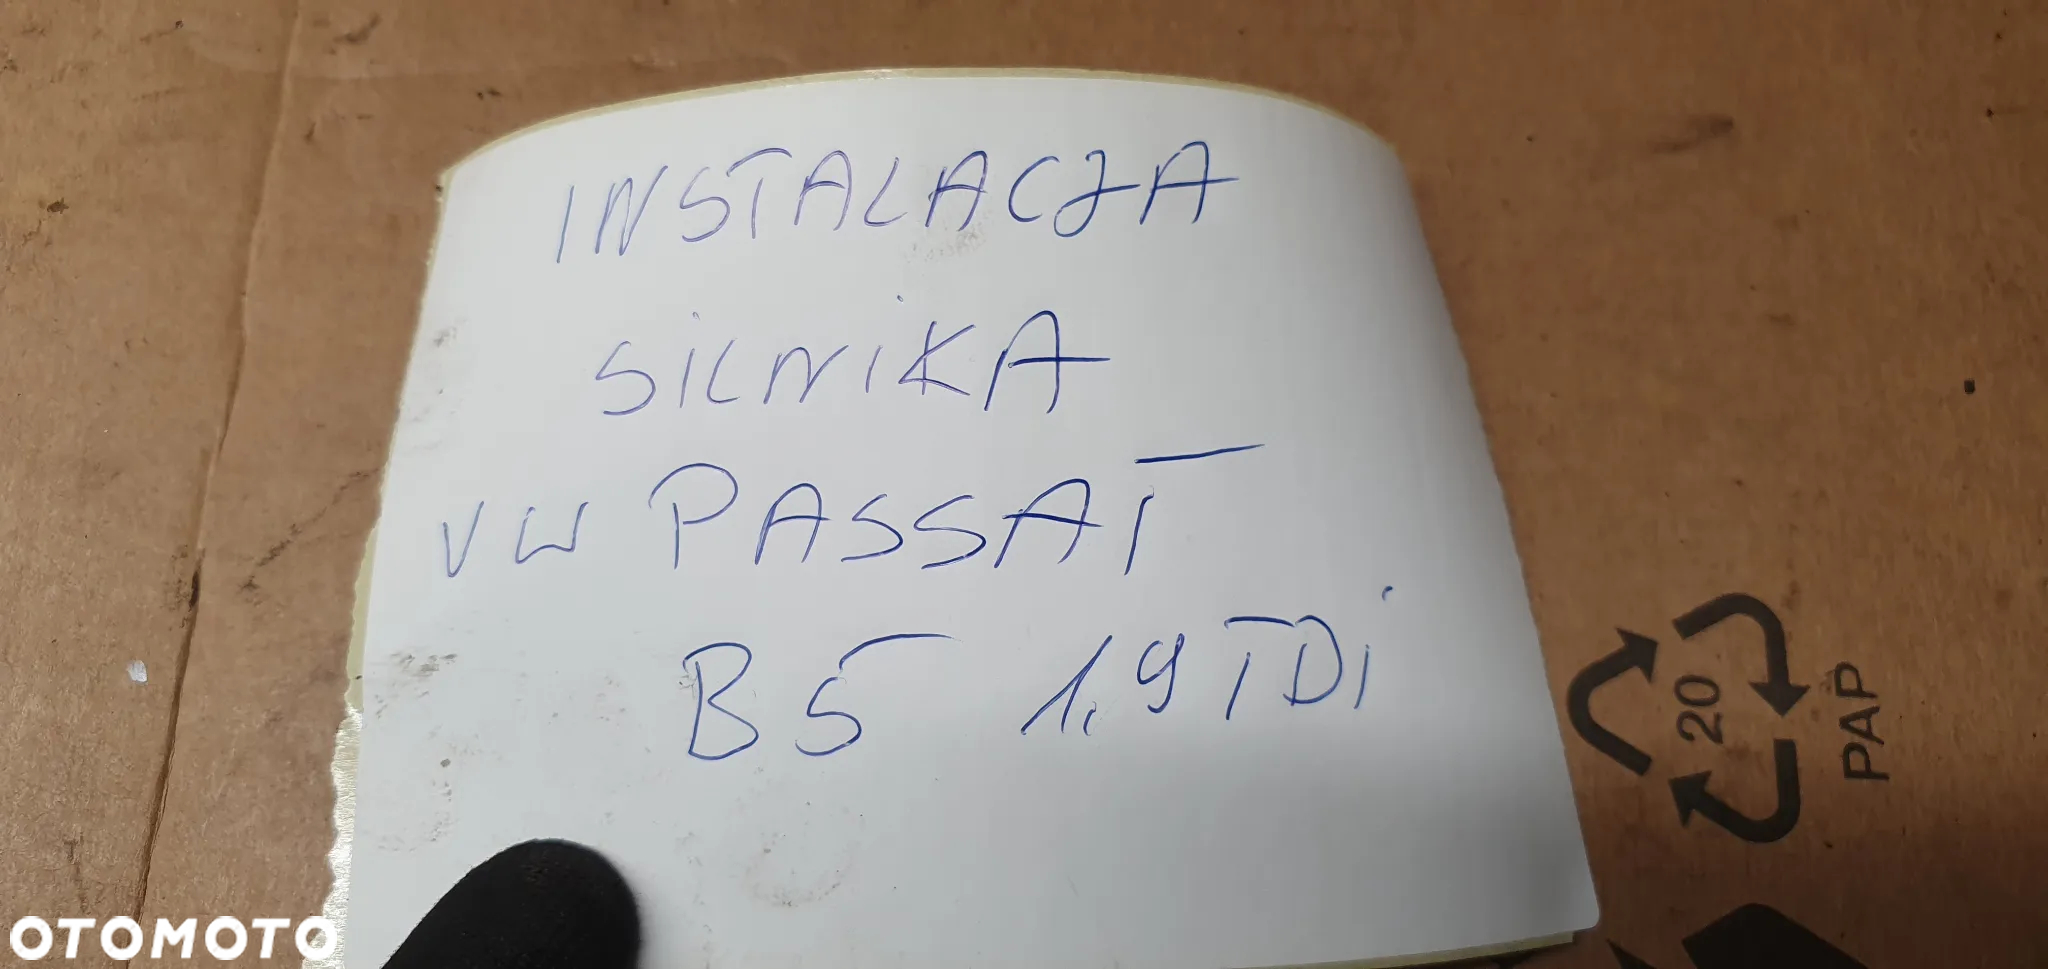 INSTALACJA
SILNIKA
VW PASSAT
B5 1,9 TDi
20
PAP
OTOMOTO